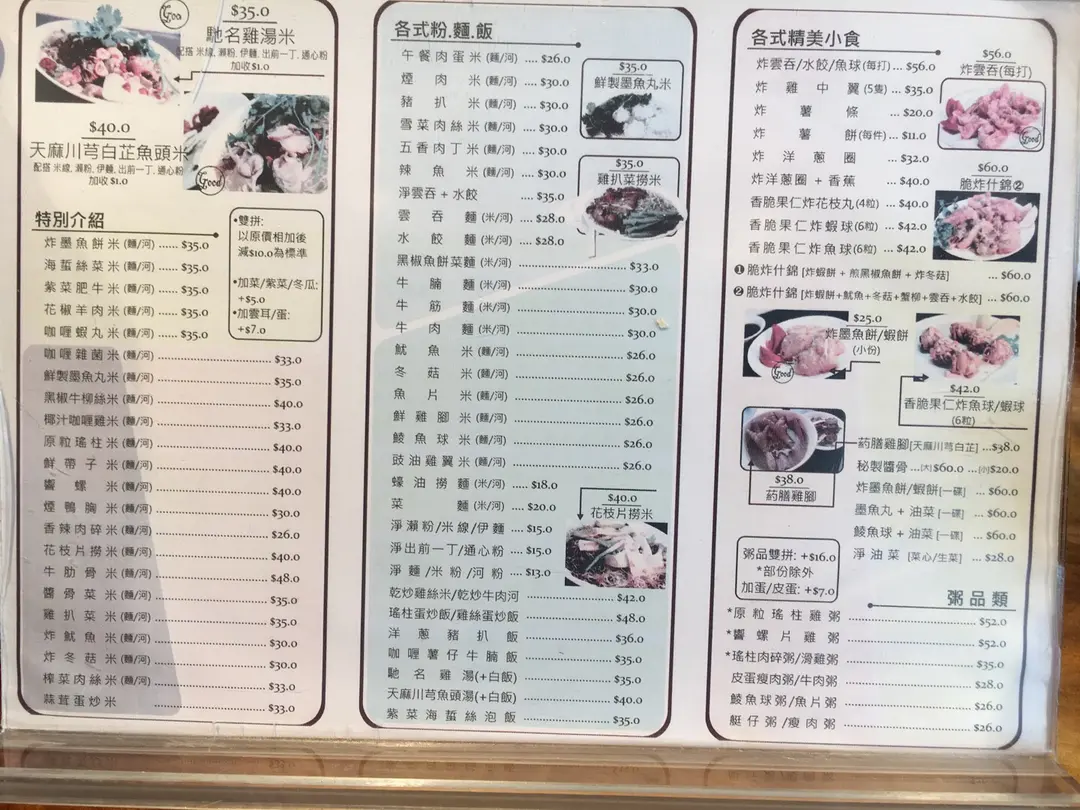 Good
$35.0
馳名雞湯米
配搭 米線, 瀨粉, 伊麵, 出前一丁, 通心粉
加收$1.0
$40.0
天麻川芎白芷魚頭米
配搭 米線, 瀨粉, 伊麵, 出前一丁, 通心粉
加收 $1.0
Good
特別介紹
炸墨魚餅米(麵/河) ...... $35.0
海蜇絲菜米(麵/河) ...... $35.0
紫菜肥牛米(麵/河) ...... $35.0
花椒羊肉米(麵/河) ...... $35.0
咖喱蝦丸米(麵/河) ...... $35.0
•雙拼:
以原價相加後
減$10.0為標準
•加菜/紫菜/冬瓜:
+$5.0
•加雲耳/蛋:
+$7.0
咖喱雜菌米(麵/河) ...... $33.0
鮮製墨魚丸米(麵/河) ...... $35.0
黑椒牛柳絲米(麵/河) ...... $40.0
椰汁咖喱雞米(麵/河) ...... $33.0
原粒瑤柱米(麵/河) ...... $40.0
鮮帶子米(麵/河) ...... $40.0
響螺米(麵/河) ...... $40.0
煙鴨胸米(麵/河) ...... $30.0
香辣肉碎米(麵/河) ...... $26.0
花枝片撈米(麵/河) ...... $40.0
牛肋骨米(麵/河) ...... $48.0
醬骨菜米(麵/河) ...... $35.0
雞扒菜米(麵/河) ...... $35.0
炸魷魚米(麵/河) ...... $30.0
炸冬菇米(麵/河) ...... $30.0
榨菜肉絲米(麵/河) ...... $33.0
蒜茸蛋炒米 ...... $33.0
各式粉.麵.飯
午餐肉蛋米(麵/河) .... $26.0
煙肉米(麵/河) .... $30.0
豬扒米(麵/河) .... $30.0
雪菜肉絲米(麵/河) .... $30.0
五香肉丁米(麵/河) .... $30.0
辣魚米(麵/河) .... $30.0
淨雲吞+水餃 .... $35.0
雲吞麵(米/河) .... $28.0
水餃麵(米/河) .... $28.0
$35.0
鮮製墨魚丸米
$35.0
雞扒菜撈米
黑椒魚餅菜麵(米/河) ...... $33.0
牛腩麵(米/河) ...... $30.0
牛筋麵(米/河) ...... $30.0
牛肉麵(米/河) ...... $30.0
魷魚米(麵/河) ...... $26.0
冬菇米(麵/河) ...... $26.0
魚片米(麵/河) ...... $26.0
鮮雞腳米(麵/河) ...... $26.0
鯪魚球米(麵/河) ...... $26.0
豉油雞翼米(麵/河) ...... $26.0
蠔油撈麵(米/河) .... $18.0
菜麵(米/河) .... $20.0
淨瀨粉/米線/伊麵 .... $15.0
淨出前一丁/通心粉 .... $15.0
淨麵/米粉/河粉 .... $13.0
$40.0
花枝片撈米
乾炒雞絲米/乾炒牛肉河 ...... $42.0
瑤柱蛋炒飯/雞絲蛋炒飯 ...... $48.0
洋蔥豬扒飯 ...... $36.0
咖喱薯仔牛腩飯 ...... $35.0
馳名雞湯(+白飯) ...... $35.0
天麻川芎魚頭湯(+白飯) ...... $40.0
紫菜海蜇絲泡飯 ...... $35.0
各式精美小食
炸雲吞/水餃/魚球(每打) ... $56.0
炸雞中翼(5隻) ... $35.0
炸薯條 ... $20.0
炸薯餅(每件) ... $11.0
炸洋蔥圈 ... $32.0
炸洋蔥圈+香蕉 ... $40.0
香脆果仁炸花枝丸(4粒) ... $40.0
香脆果仁炸蝦球(6粒) ... $42.0
香脆果仁炸魚球(6粒) ... $42.0
$56.0
炸雲吞(每打)
Good
$60.0
脆炸什錦②
❶脆炸什錦[炸蝦餅+煎黑椒魚餅+炸冬菇] ... $60.0
❷脆炸什錦[炸蝦餅+魷魚+冬菇+蟹柳+雲吞+水餃] ... $60.0
$25.0
炸墨魚餅/蝦餅
(小份)
Good
$42.0
香脆果仁炸魚球/蝦球
(6粒)
$38.0
葯膳雞腳
葯膳雞腳[天麻川芎白芷] ...$38.0
秘製醬骨...(大)$60.0 ...(小)$20.0
炸墨魚餅/蝦餅[一碟] ... $60.0
墨魚丸+油菜[一碟] ... $60.0
鯪魚球+油菜[一碟] ... $60.0
淨油菜[菜心/生菜] ... $28.0
粥品雙拼: +$16.0
*部份除外
加蛋/皮蛋: +$7.0
粥品類
*原粒瑤柱雞粥 ...... $52.0
*響螺片雞粥 ...... $52.0
*瑤柱肉碎粥/滑雞粥 ...... $35.0
皮蛋瘦肉粥/牛肉粥 ...... $28.0
鯪魚球粥/魚片粥 ...... $26.0
艇仔粥/瘦肉粥 ...... $26.0